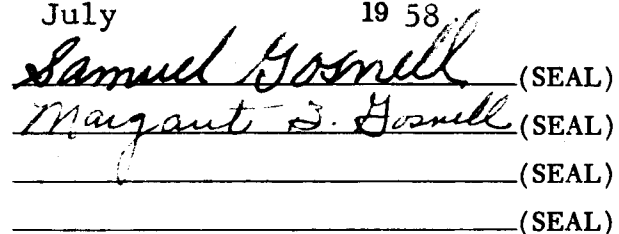 July 19 58
Samuel Gosnell (SEAL)
Margaret B. Gosnell (SEAL)
(SEAL)
(SEAL)